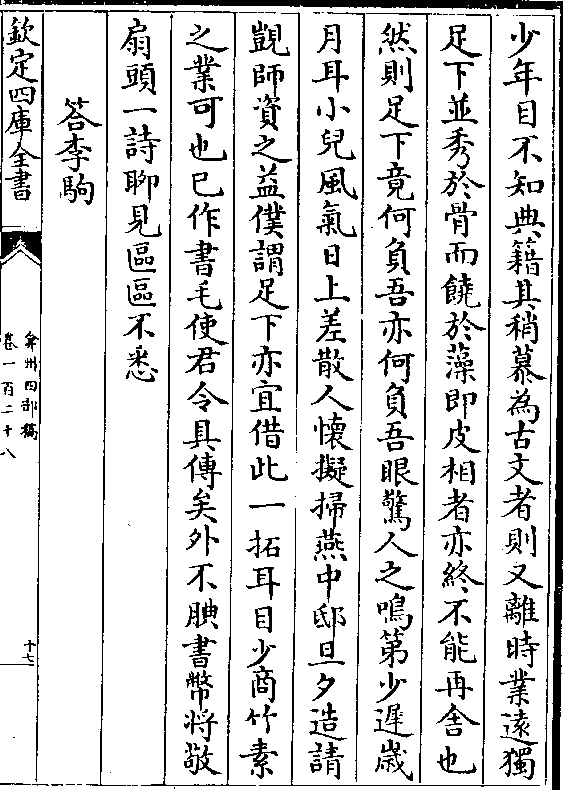 少年目不知典籍其稍慕為古文者則又離時業遠獨
足下並秀於骨而饒於藻即皮相者亦終不能再舎也
然則足下竟何負吾亦何負吾眼驚人之鳴第少遲歳
月耳小兒風氣日上差散人懐擬掃燕中邸旦夕造請
覬師資之益僕謂足下亦宜借此一拓耳目少商竹素
之業可也已作書毛使君令具傳矣外不腆書幣将敬
扇頭一詩聊見區區不悉
答李駒
欽定四庫全書
弇州四部稿
卷一百二十八
十七